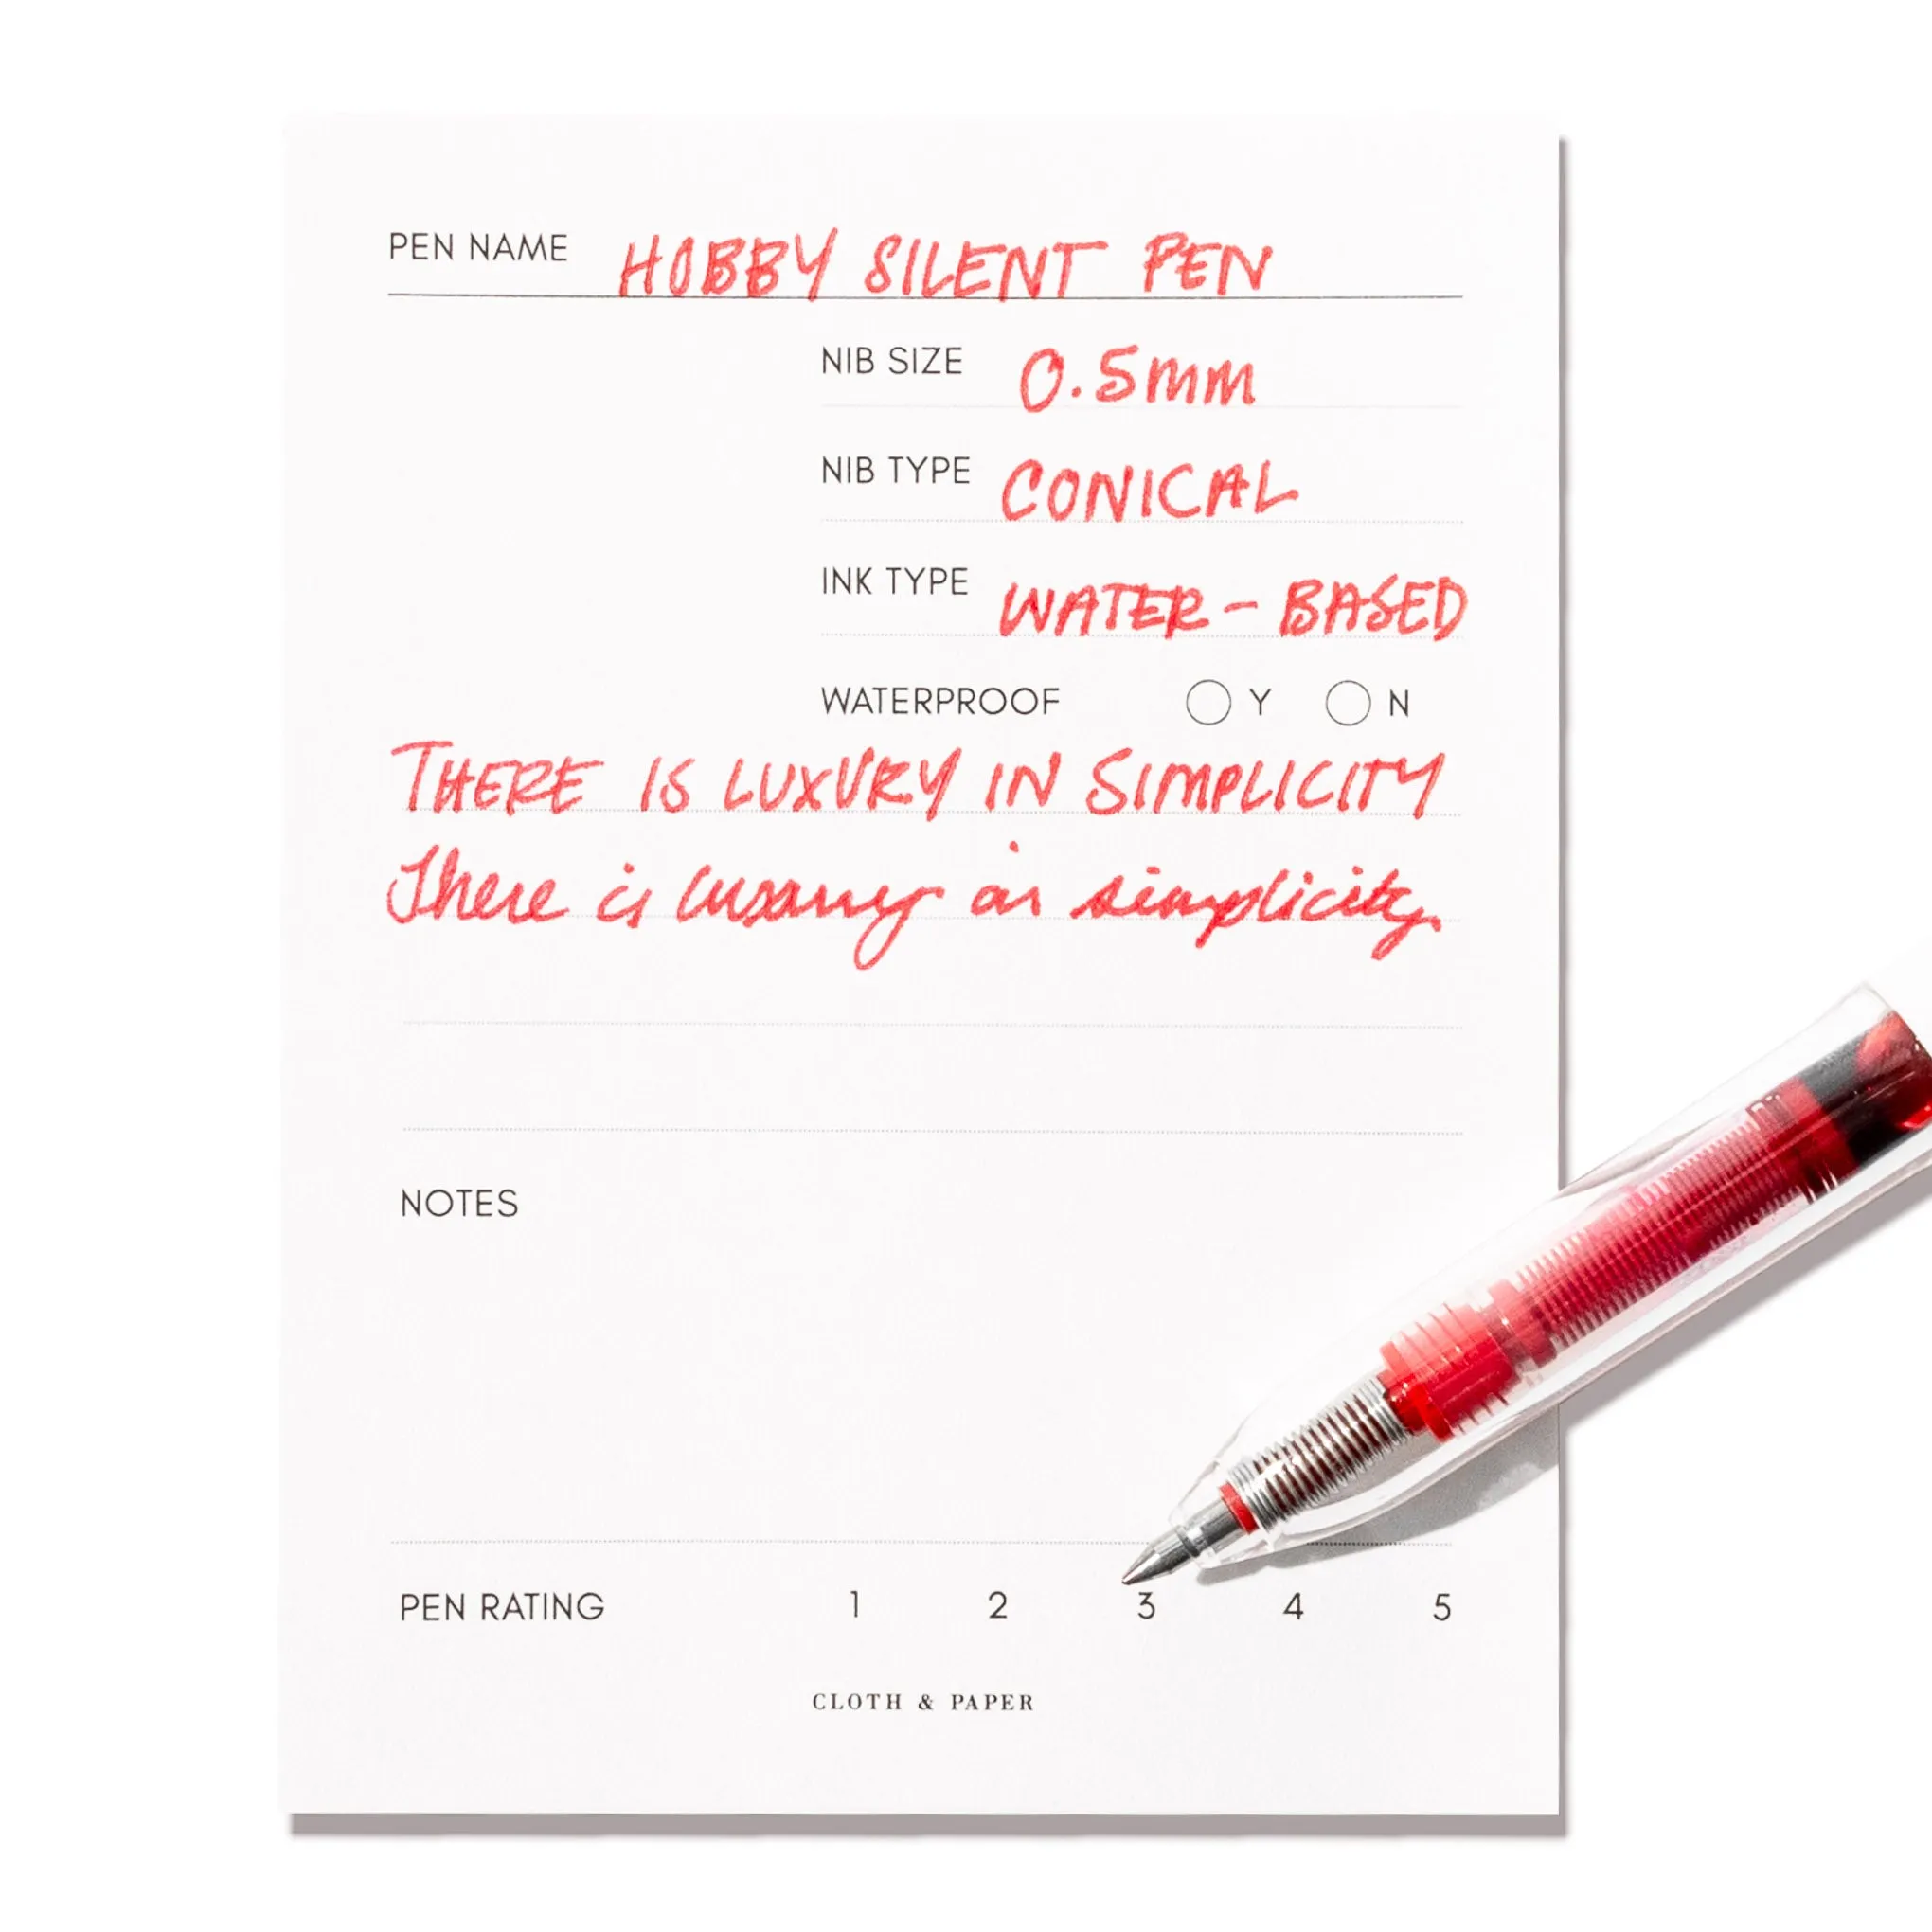 PEN NAME HOBBY SILENT PEN
NIB SIZE 0.5mm
NIB TYPE CONICAL
INK TYPE WATER-BASED
WATERPROOF Y N
THERE IS LUXURY IN SIMPLICITY
There is luxury in simplicity
NOTES
PEN RATING 1 2 3 4 5
CLOTH & PAPER